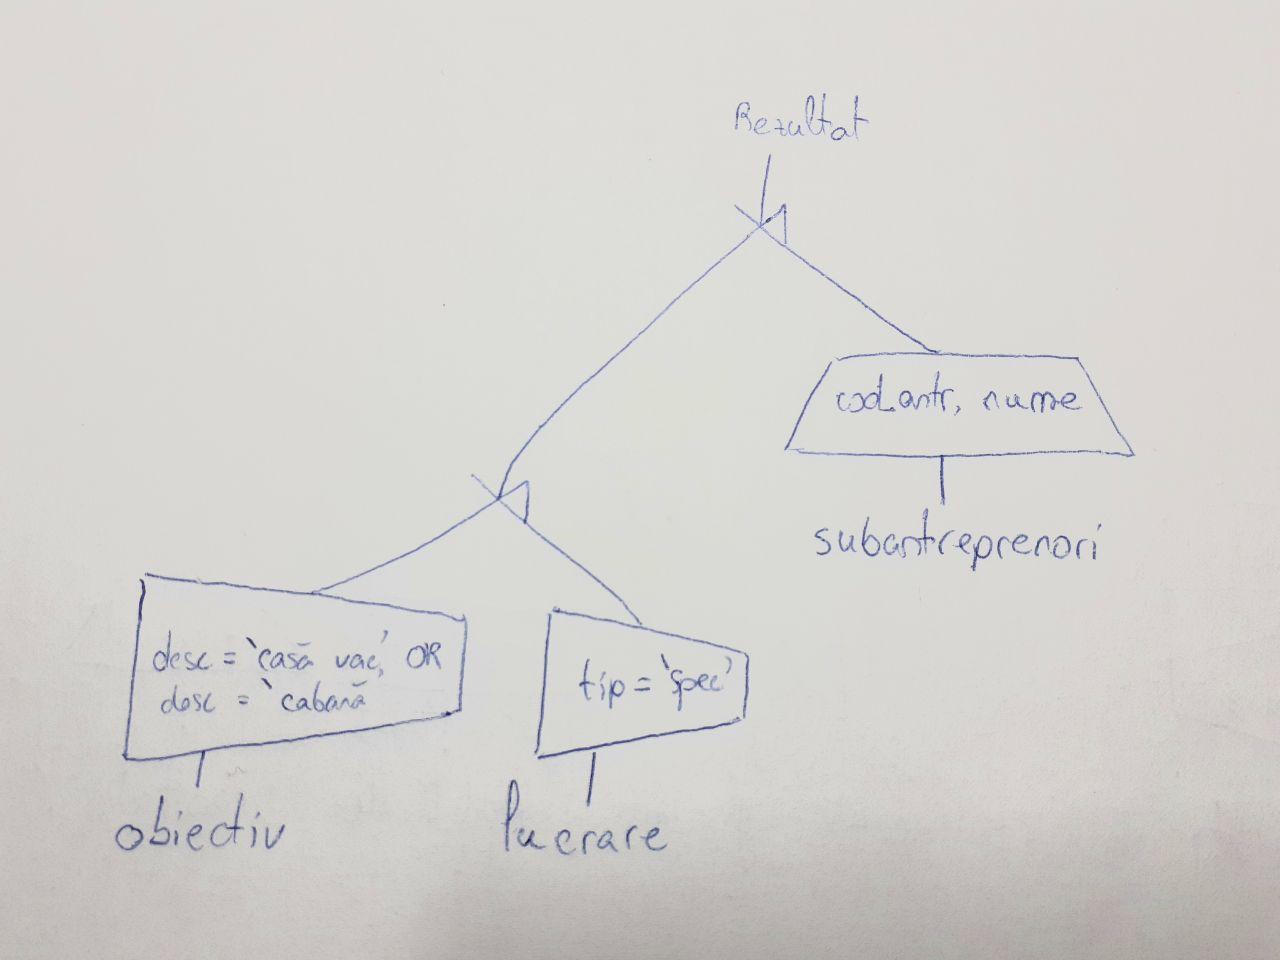 Rezultat
cod_antr, nume
subantreprenori
desc = `casă vac,' OR
desc = `cabană
tip = `spec'
obiectiv
lucrare